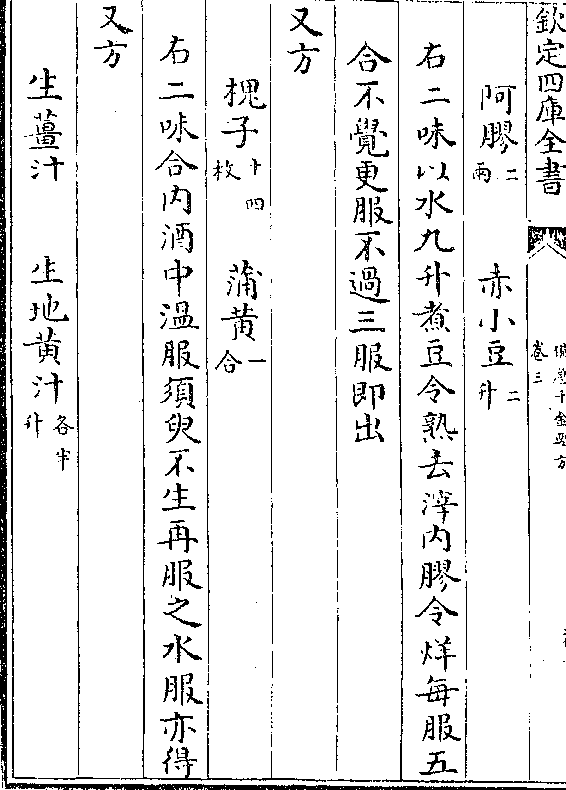 欽定四庫全書
備急千金要方
卷三
阿膠二兩　赤小豆二升
右二味以水九升煮豆令熟去滓内膠令烊每服五
合不覺更服不過三服即出
又方
槐子十四枚　蒲黄一合
右二味合内酒中温服須臾不生再服之水服亦得
又方
生薑汁　生地黄汁各半升